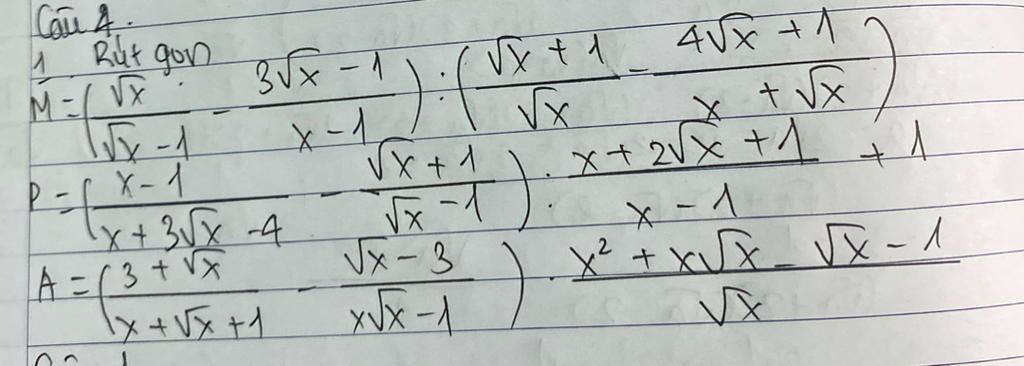 Câu 4.
1 Rút gọn
M = (√x / (√x - 1) - (3√x - 1) / (x - 1)) : ((√x + 1) / √x - (4√x + 1) / (x + √x))
P = ((x - 1) / (x + 3√x - 4) - (√x + 1) / (√x - 1)) : (x + 2√x + 1) / (x - 1) + 1
A = ((3 + √x) / (x + √x + 1) - (√x - 3) / (x√x - 1)) · (x² + x√x - √x - 1) / √x